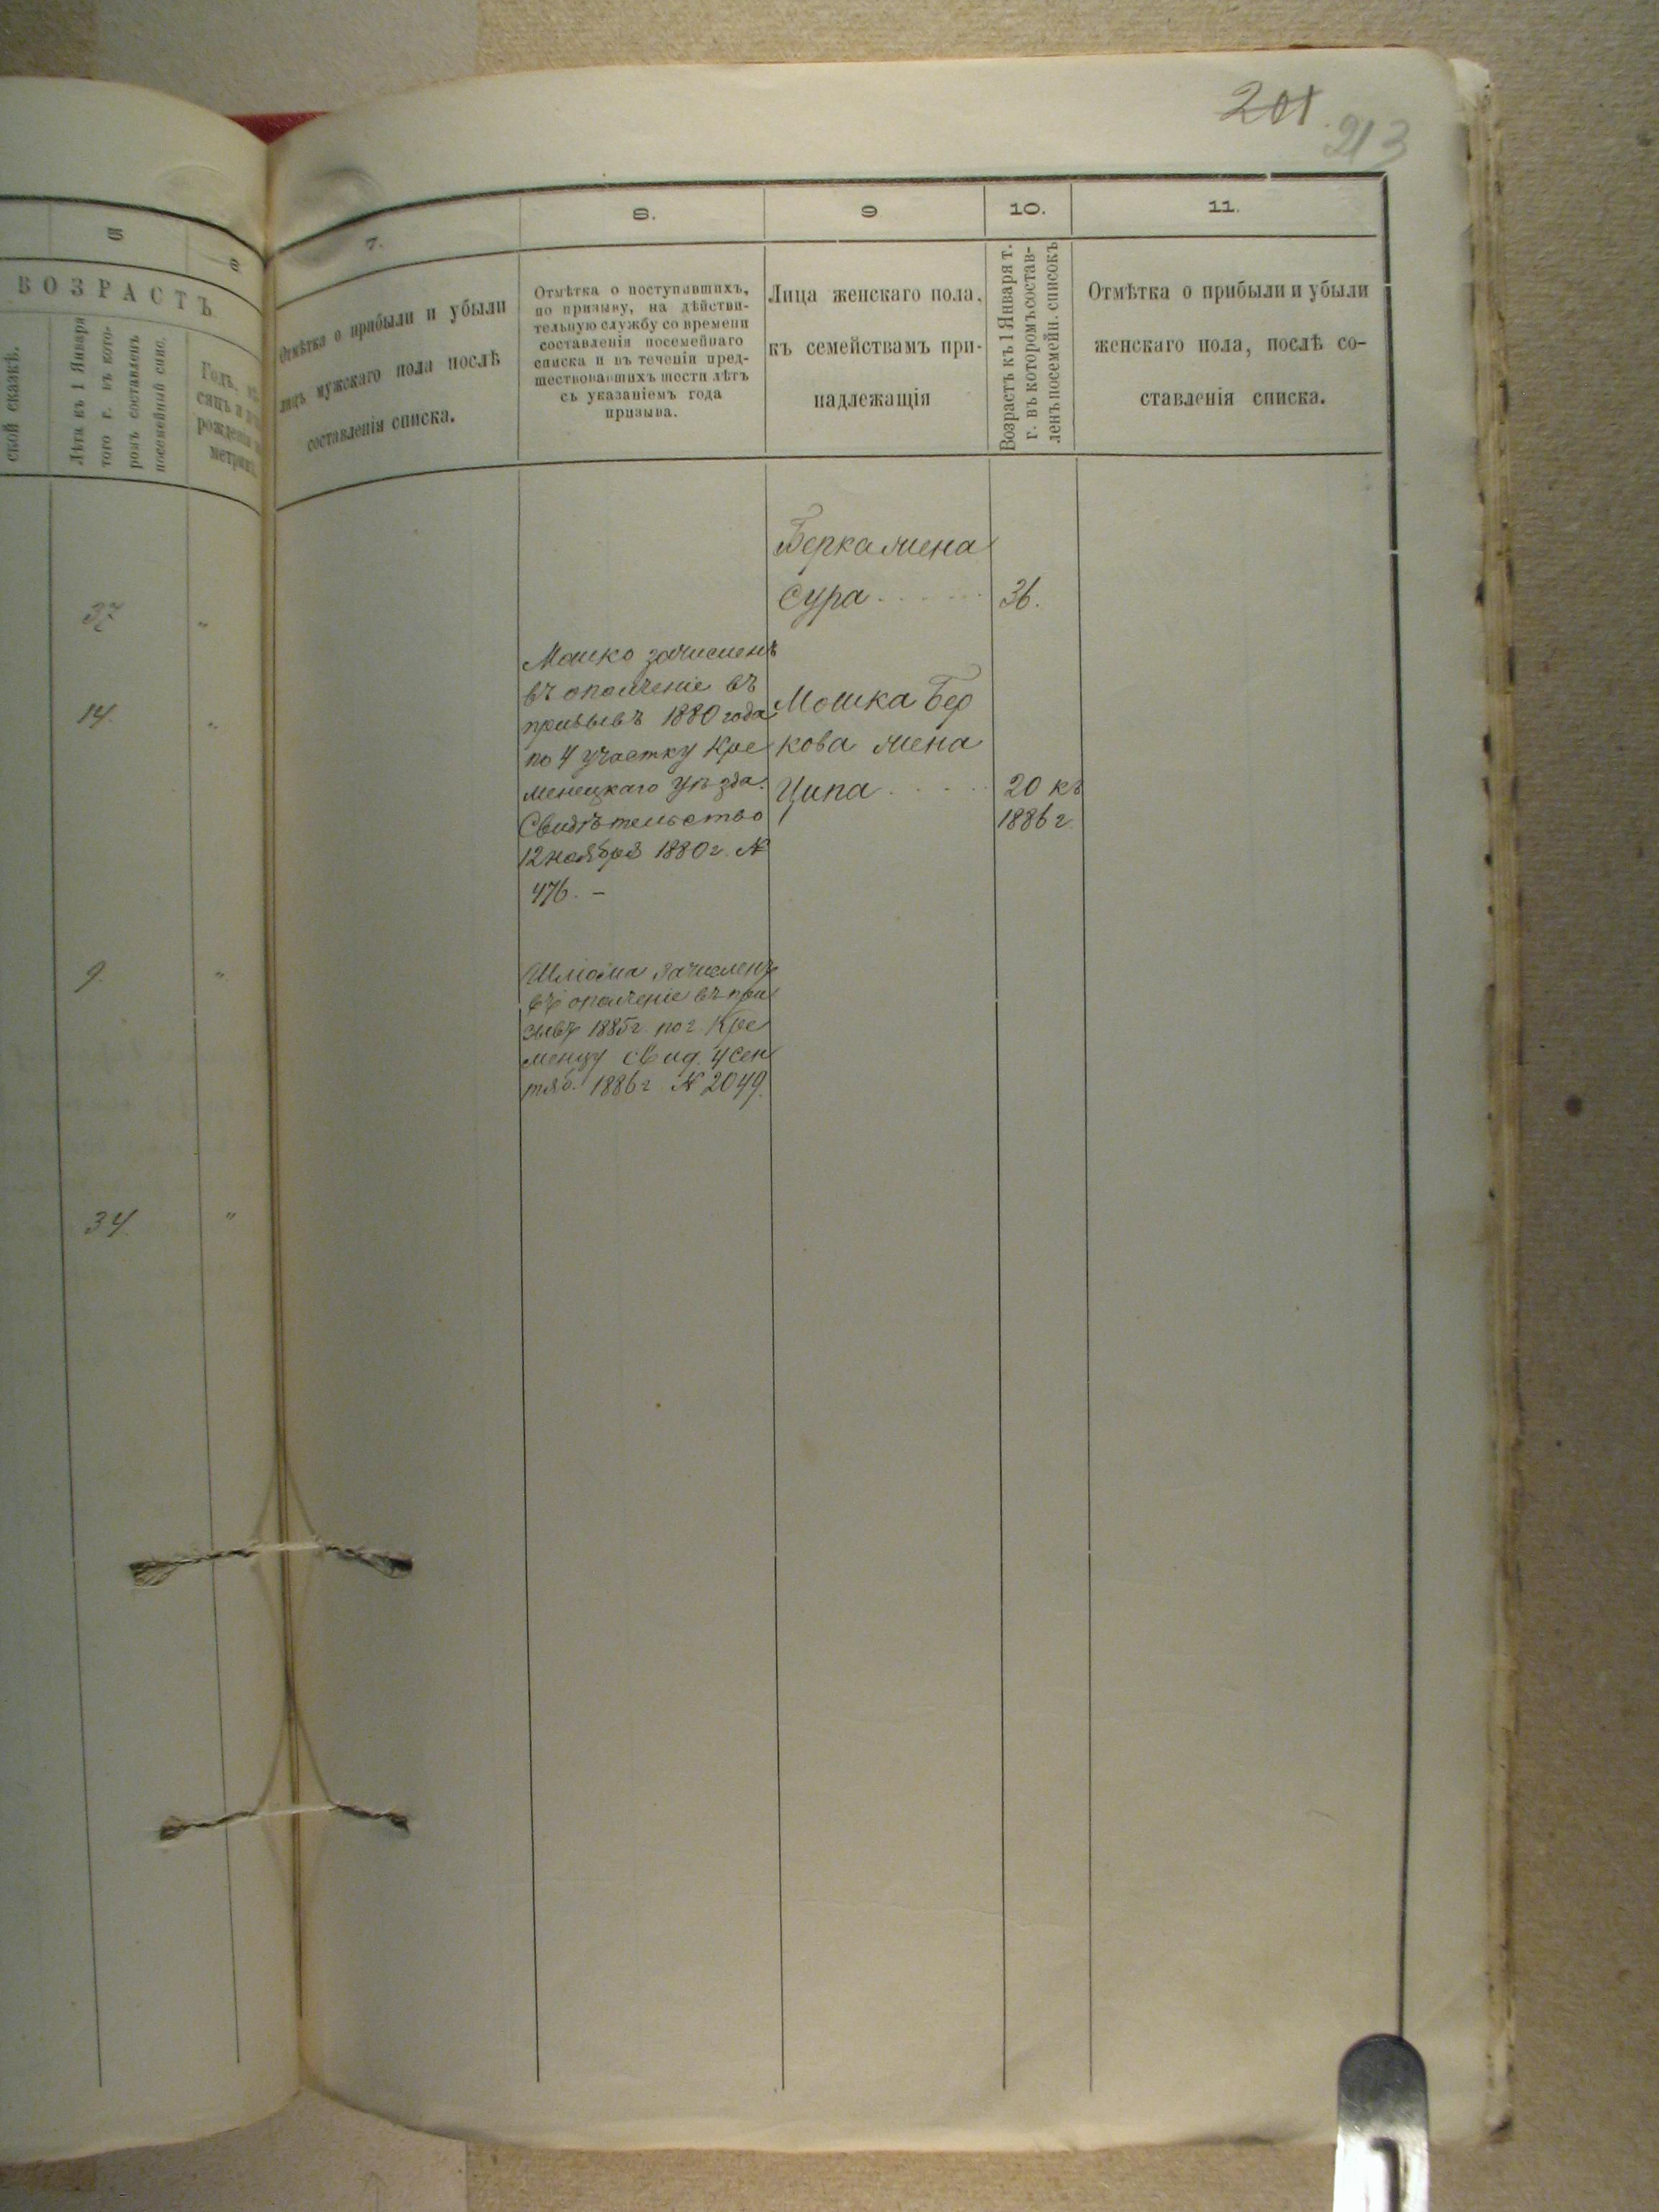 201.
213
5
6
7.
8.
9
10.
11.
ВОЗРАСТЪ
ской сказкѣ.
Лѣта къ 1 Января
того г. въ кото-
ромъ составленъ
посемейный спис.
Годъ, мѣ-
сяцъ и
рожденія
метрик
Отмѣтка о прибыли и убыли
лицъ мужскаго пола послѣ
составленія списка.
Отмѣтка о поступившихъ,
по призыву, на дѣйстви-
тельную службу со времени
составленія посемейнаго
списка и въ теченіи пред-
шествовавшихъ шести лѣтъ
съ указаніемъ года
призыва.
Лица женскаго пола,
къ семействамъ при-
надлежащія
Возрастъ къ 1 Января т.
г. въ которомъ состав-
ленъ посемейн. списокъ
Отмѣтка о прибыли и убыли
женскаго пола, послѣ со-
ставленія списка.
37 "
14. "
9. "
34. "
Мошко зачисленъ
въ ополченіе въ
призывъ 1880 года
по 4 участку Кре
менецкаго уѣзда.
Свидѣтельство
12 ноября 1880 г. №
476. –
Шліома зачисленъ
въ ополченіе въ при
зывъ 1885 г. по г. Кре
менцу Свид. 4 Сен
тяб. 1886 г. № 2049.
Берка жена
Сура . . . . . . 36.
Мошка Бер
кова жена
Ципа . . . . . 20 къ
1886 г.